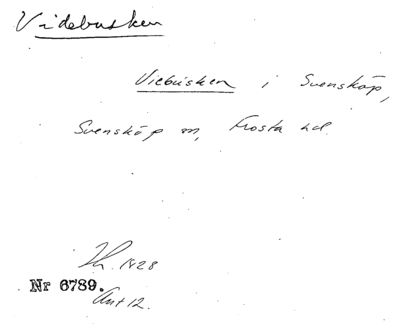 Videbusken
Viebusken i Svensköp,
Svensköp sn, Frosta hd.
1828
Nr 6789.
Ant 12.